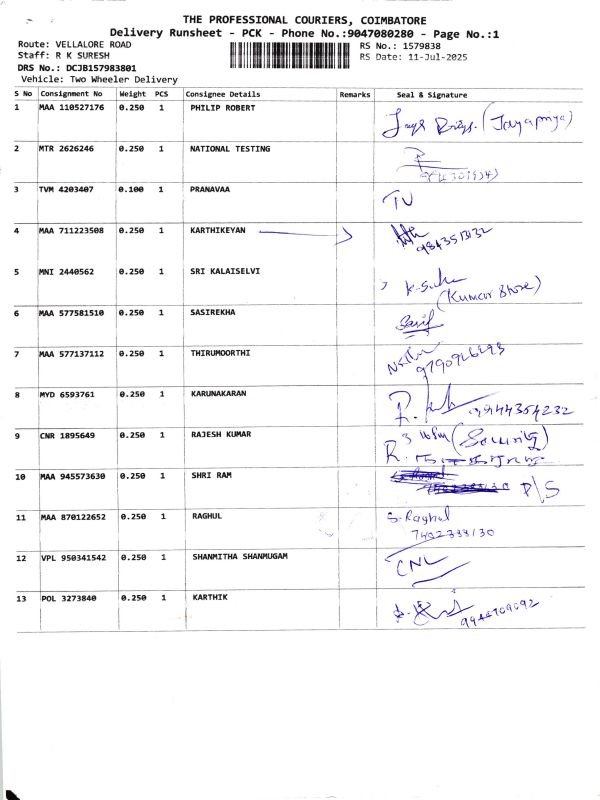 THE PROFESSIONAL COURIERS, COIMBATORE
Delivery Runsheet - PCK - Phone No.:9047080280 - Page No.:1
Route: VELLALORE ROAD
Staff: R K SURESH
DRS No.: DCJB157983801
Vehicle: Two Wheeler Delivery
RS No.: 1579838
RS Date: 11-Jul-2025
S No Consignment No Weight PCS Consignee Details Remarks Seal & Signature
1 MAA 110527176 0.250 1 PHILIP ROBERT (Jayapriya)
2 MTR 2626246 0.250 1 NATIONAL TESTING
3 TVM 4203407 0.100 1 PRANAVAA
4 MAA 711223508 0.250 1 KARTHIKEYAN
5 MNI 2440562 0.250 1 SRI KALAISELVI
(Kumar Store)
6 MAA 577581510 0.250 1 SASIREKHA
7 MAA 577137112 0.250 1 THIRUMOORTHI
8 MYD 6593761 0.250 1 KARUNAKARAN 9944354232
9 CNR 1895649 0.250 1 RAJESH KUMAR (Security)
10 MAA 945573630 0.250 1 SHRI RAM D/S
11 MAA 870122652 0.250 1 RAGHUL S. Raghul
12 VPL 950341542 0.250 1 SHANMITHA SHANMUGAM CNL
13 POL 3273840 0.250 1 KARTHIK